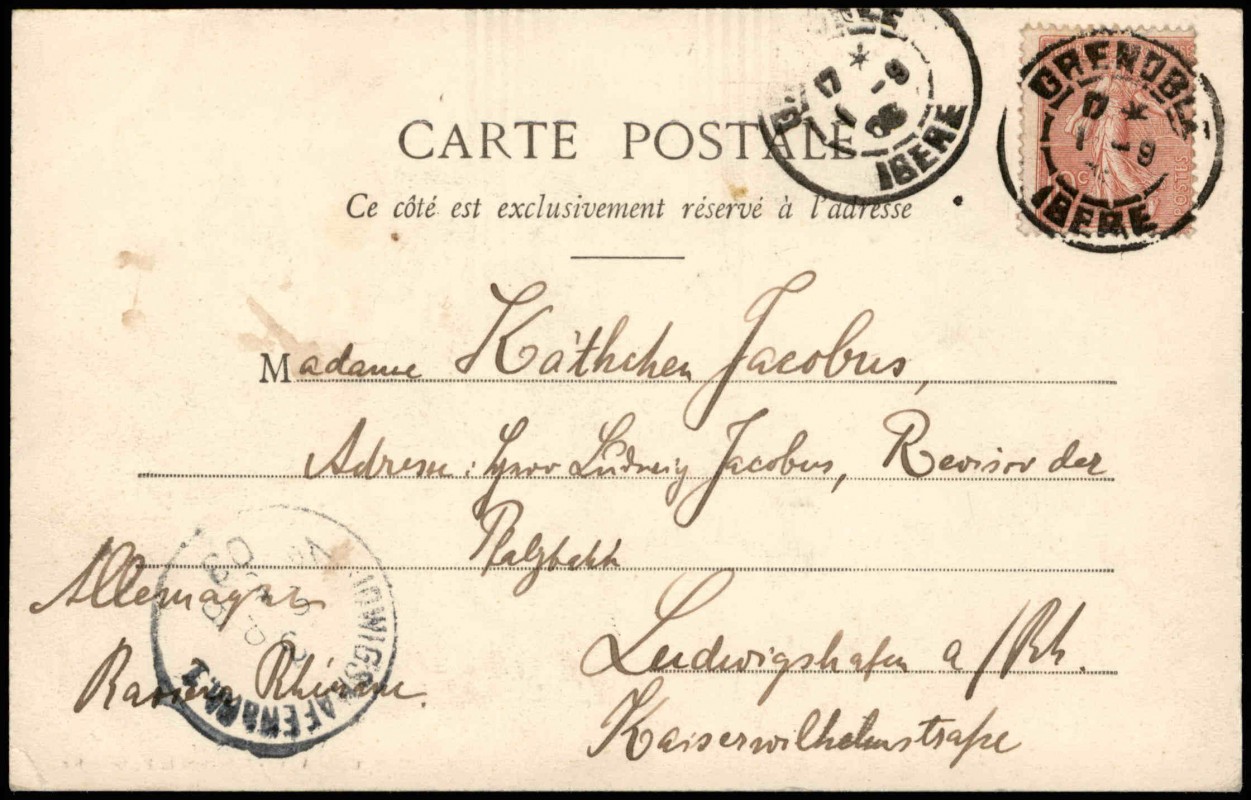 CARTE POSTALE
Ce côté est exclusivement réservé à l'adresse
GRENOBLE
17 *
1 -9
ISERE
17 *
1 -9
03
ISERE
POSTES
Madame Käthchen Jacobus,
Adresse: Ludwig Jacobus, Revisor der
Pfalzbahn
Ludwigshafen a/Rh.
Kaiserwilhelmstraße
Allemagne
Bavière Rhénane.